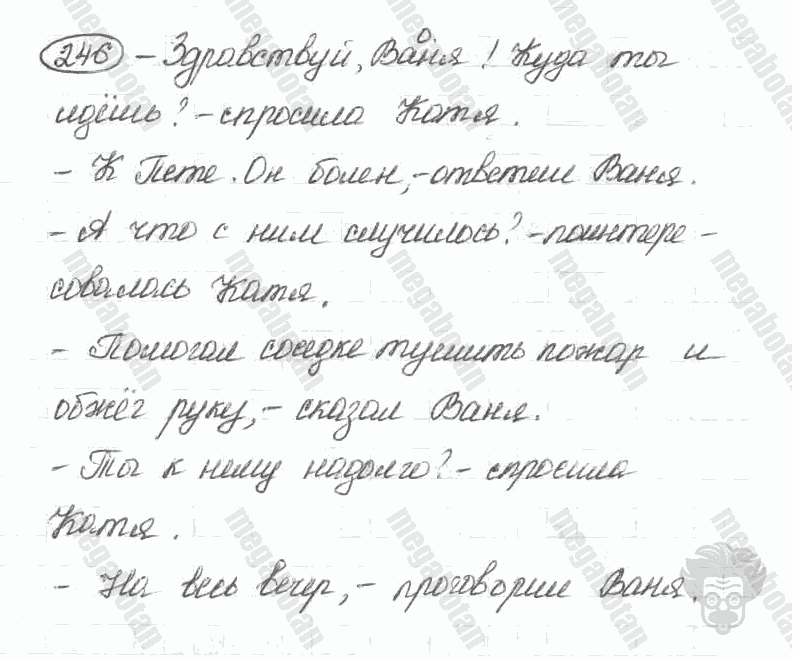 246 – Здравствуй, Ваня! Куда ты
идёшь? – спросила Катя.
– К Пете. Он болен, – ответил Ваня.
– А что с ним случилось? – поинтере –
совалась Катя.
– Помогал соседке тушить пожар и
обжёг руку, – сказал Ваня.
– Ты к нему надолго? – спросила
Катя.
– На весь вечер, – проговорил Ваня.
megabotan